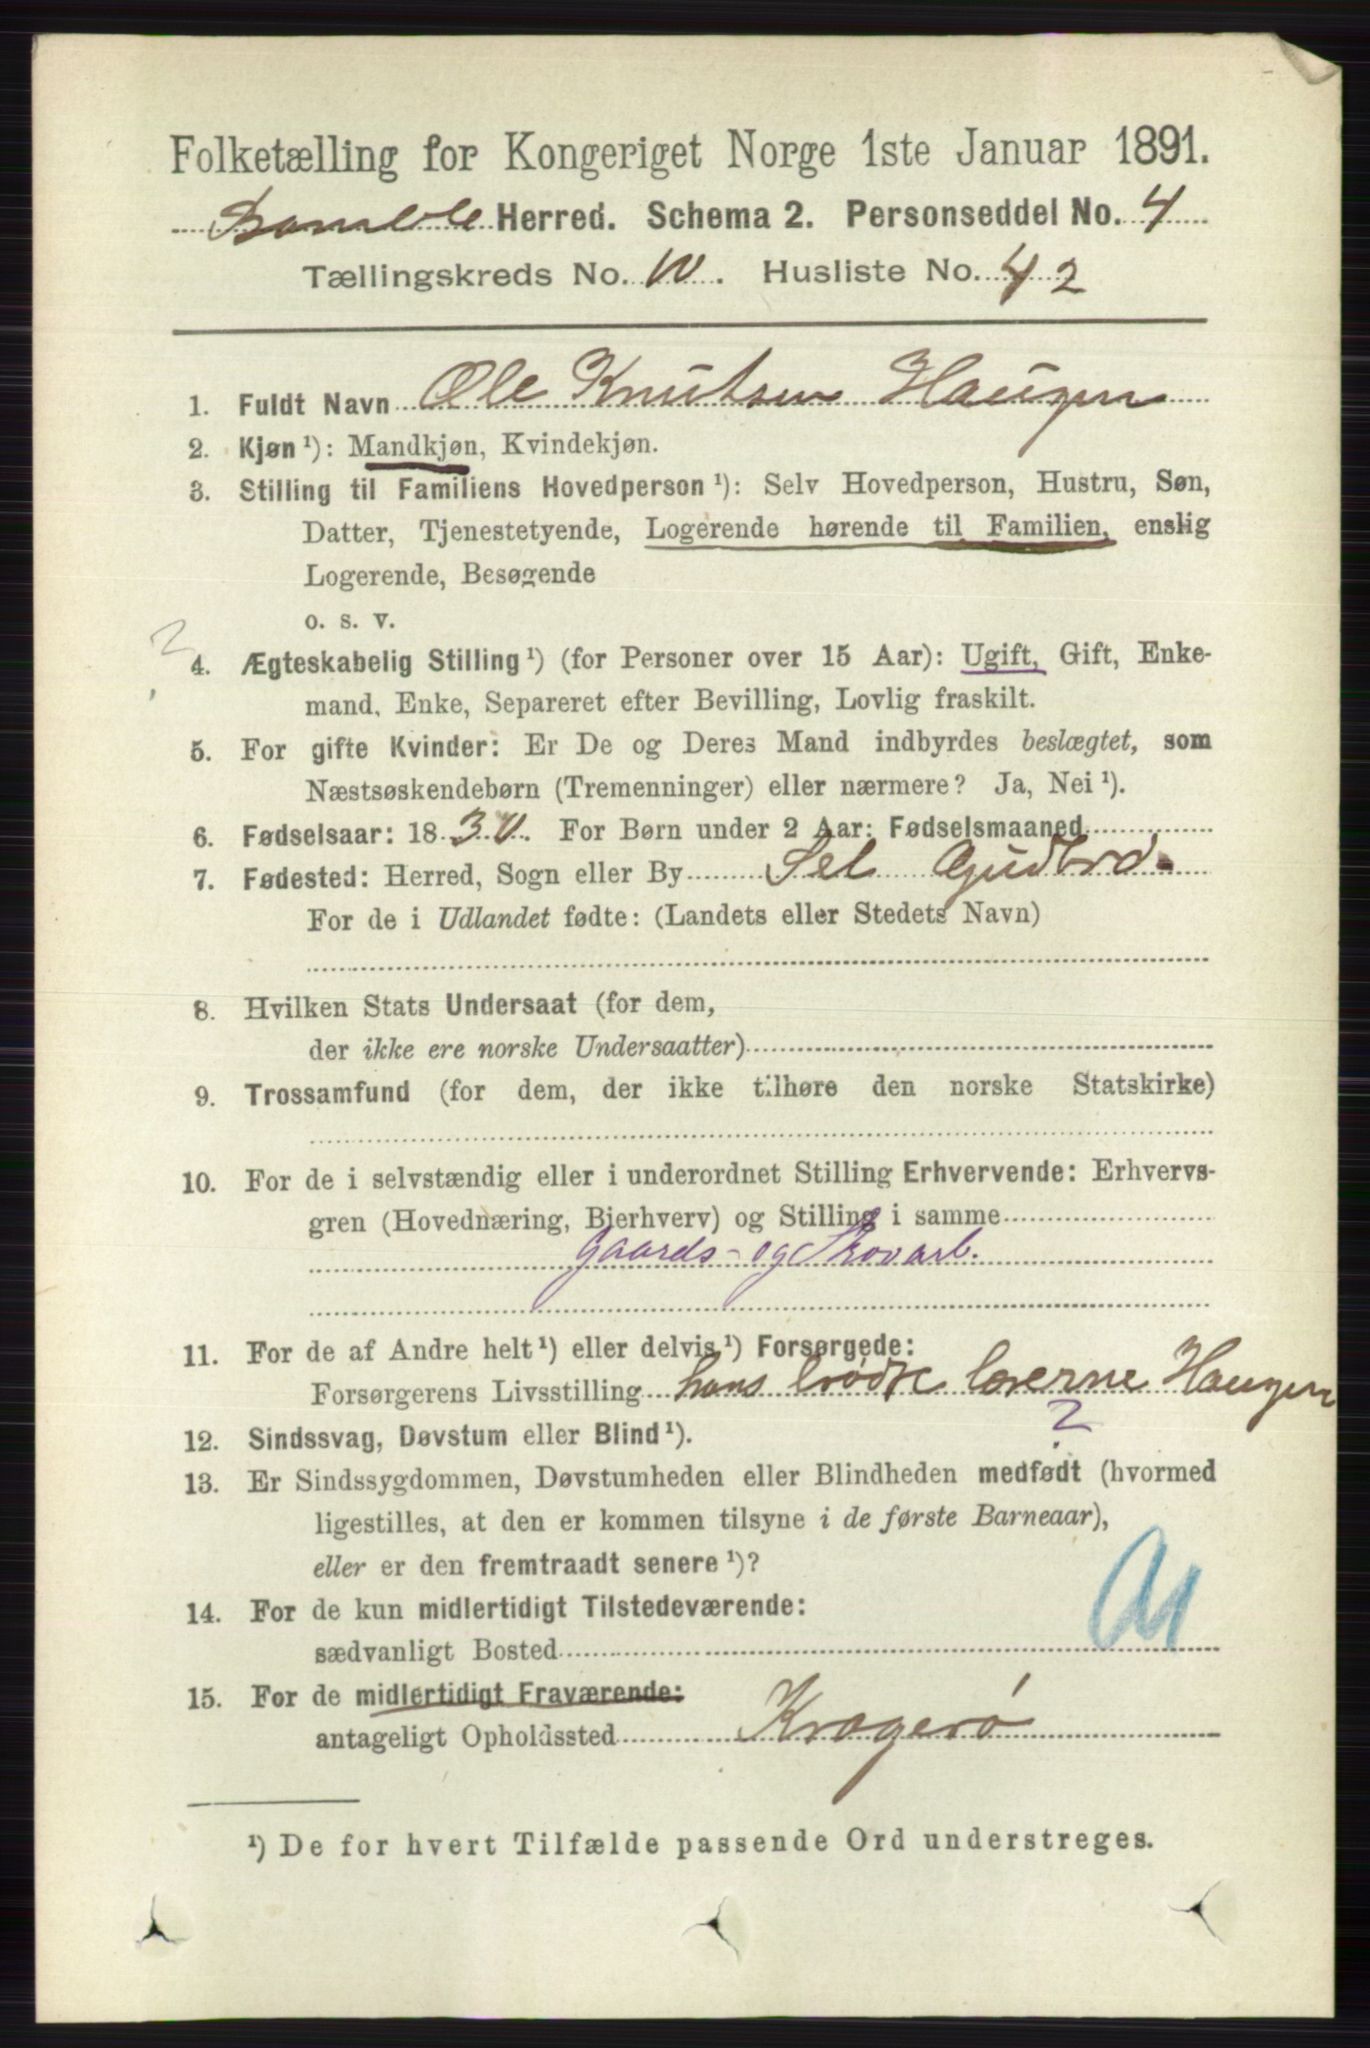 Folketælling for Kongeriget Norge 1ste Januar 1891.
Bamble Herred. Schema 2. Personseddel No. 4
Tællingskreds No. 10. Husliste No. 42
1. Fuldt Navn Ole Knutsen Haugen
2. Kjøn ¹): Mandkjøn, Kvindekjøn.
3. Stilling til Familiens Hovedperson ¹): Selv Hovedperson, Hustru, Søn,
Datter, Tjenestetyende, Logerende hørende til Familien, enslig
Logerende, Besøgende
o. s. v.
2
4. Ægteskabelig Stilling ¹) (for Personer over 15 Aar): Ugift, Gift, Enke-
mand, Enke, Separeret efter Bevilling, Lovlig fraskilt.
5. For gifte Kvinder: Er De og Deres Mand indbyrdes beslægtet, som
Næstsøskendebørn (Tremenninger) eller nærmere? Ja, Nei ¹).
6. Fødselsaar: 1830. For Børn under 2 Aar: Fødselsmaaned
7. Fødested: Herred, Sogn eller By Sel Gudbrd-
For de i Udlandet fødte: (Landets eller Stedets Navn)
8. Hvilken Stats Undersaat (for dem,
der ikke ere norske Undersaatter)
9. Trossamfund (for dem, der ikke tilhøre den norske Statskirke)
10. For de i selvstændig eller i underordnet Stilling Erhvervende: Erhvervs-
gren (Hovednæring, Bierhverv) og Stilling i samme
Gaards- og Skovarb.
11. For de af Andre helt ¹) eller delvis ¹) Forsørgede:
Forsørgerens Livsstilling hans Haugen
?
12. Sindssvag, Døvstum eller Blind ¹).
13. Er Sindssygdommen, Døvstumheden eller Blindheden medfødt (hvormed
ligestilles, at den er kommen tilsyne i de første Barneaar),
eller er den fremtraadt senere ¹)?
14. For de kun midlertidigt Tilstedeværende:
sædvanligt Bosted
15. For de midlertidigt Fraværende:
antageligt Opholdssted Kragerø
¹) De for hvert Tilfælde passende Ord understreges.